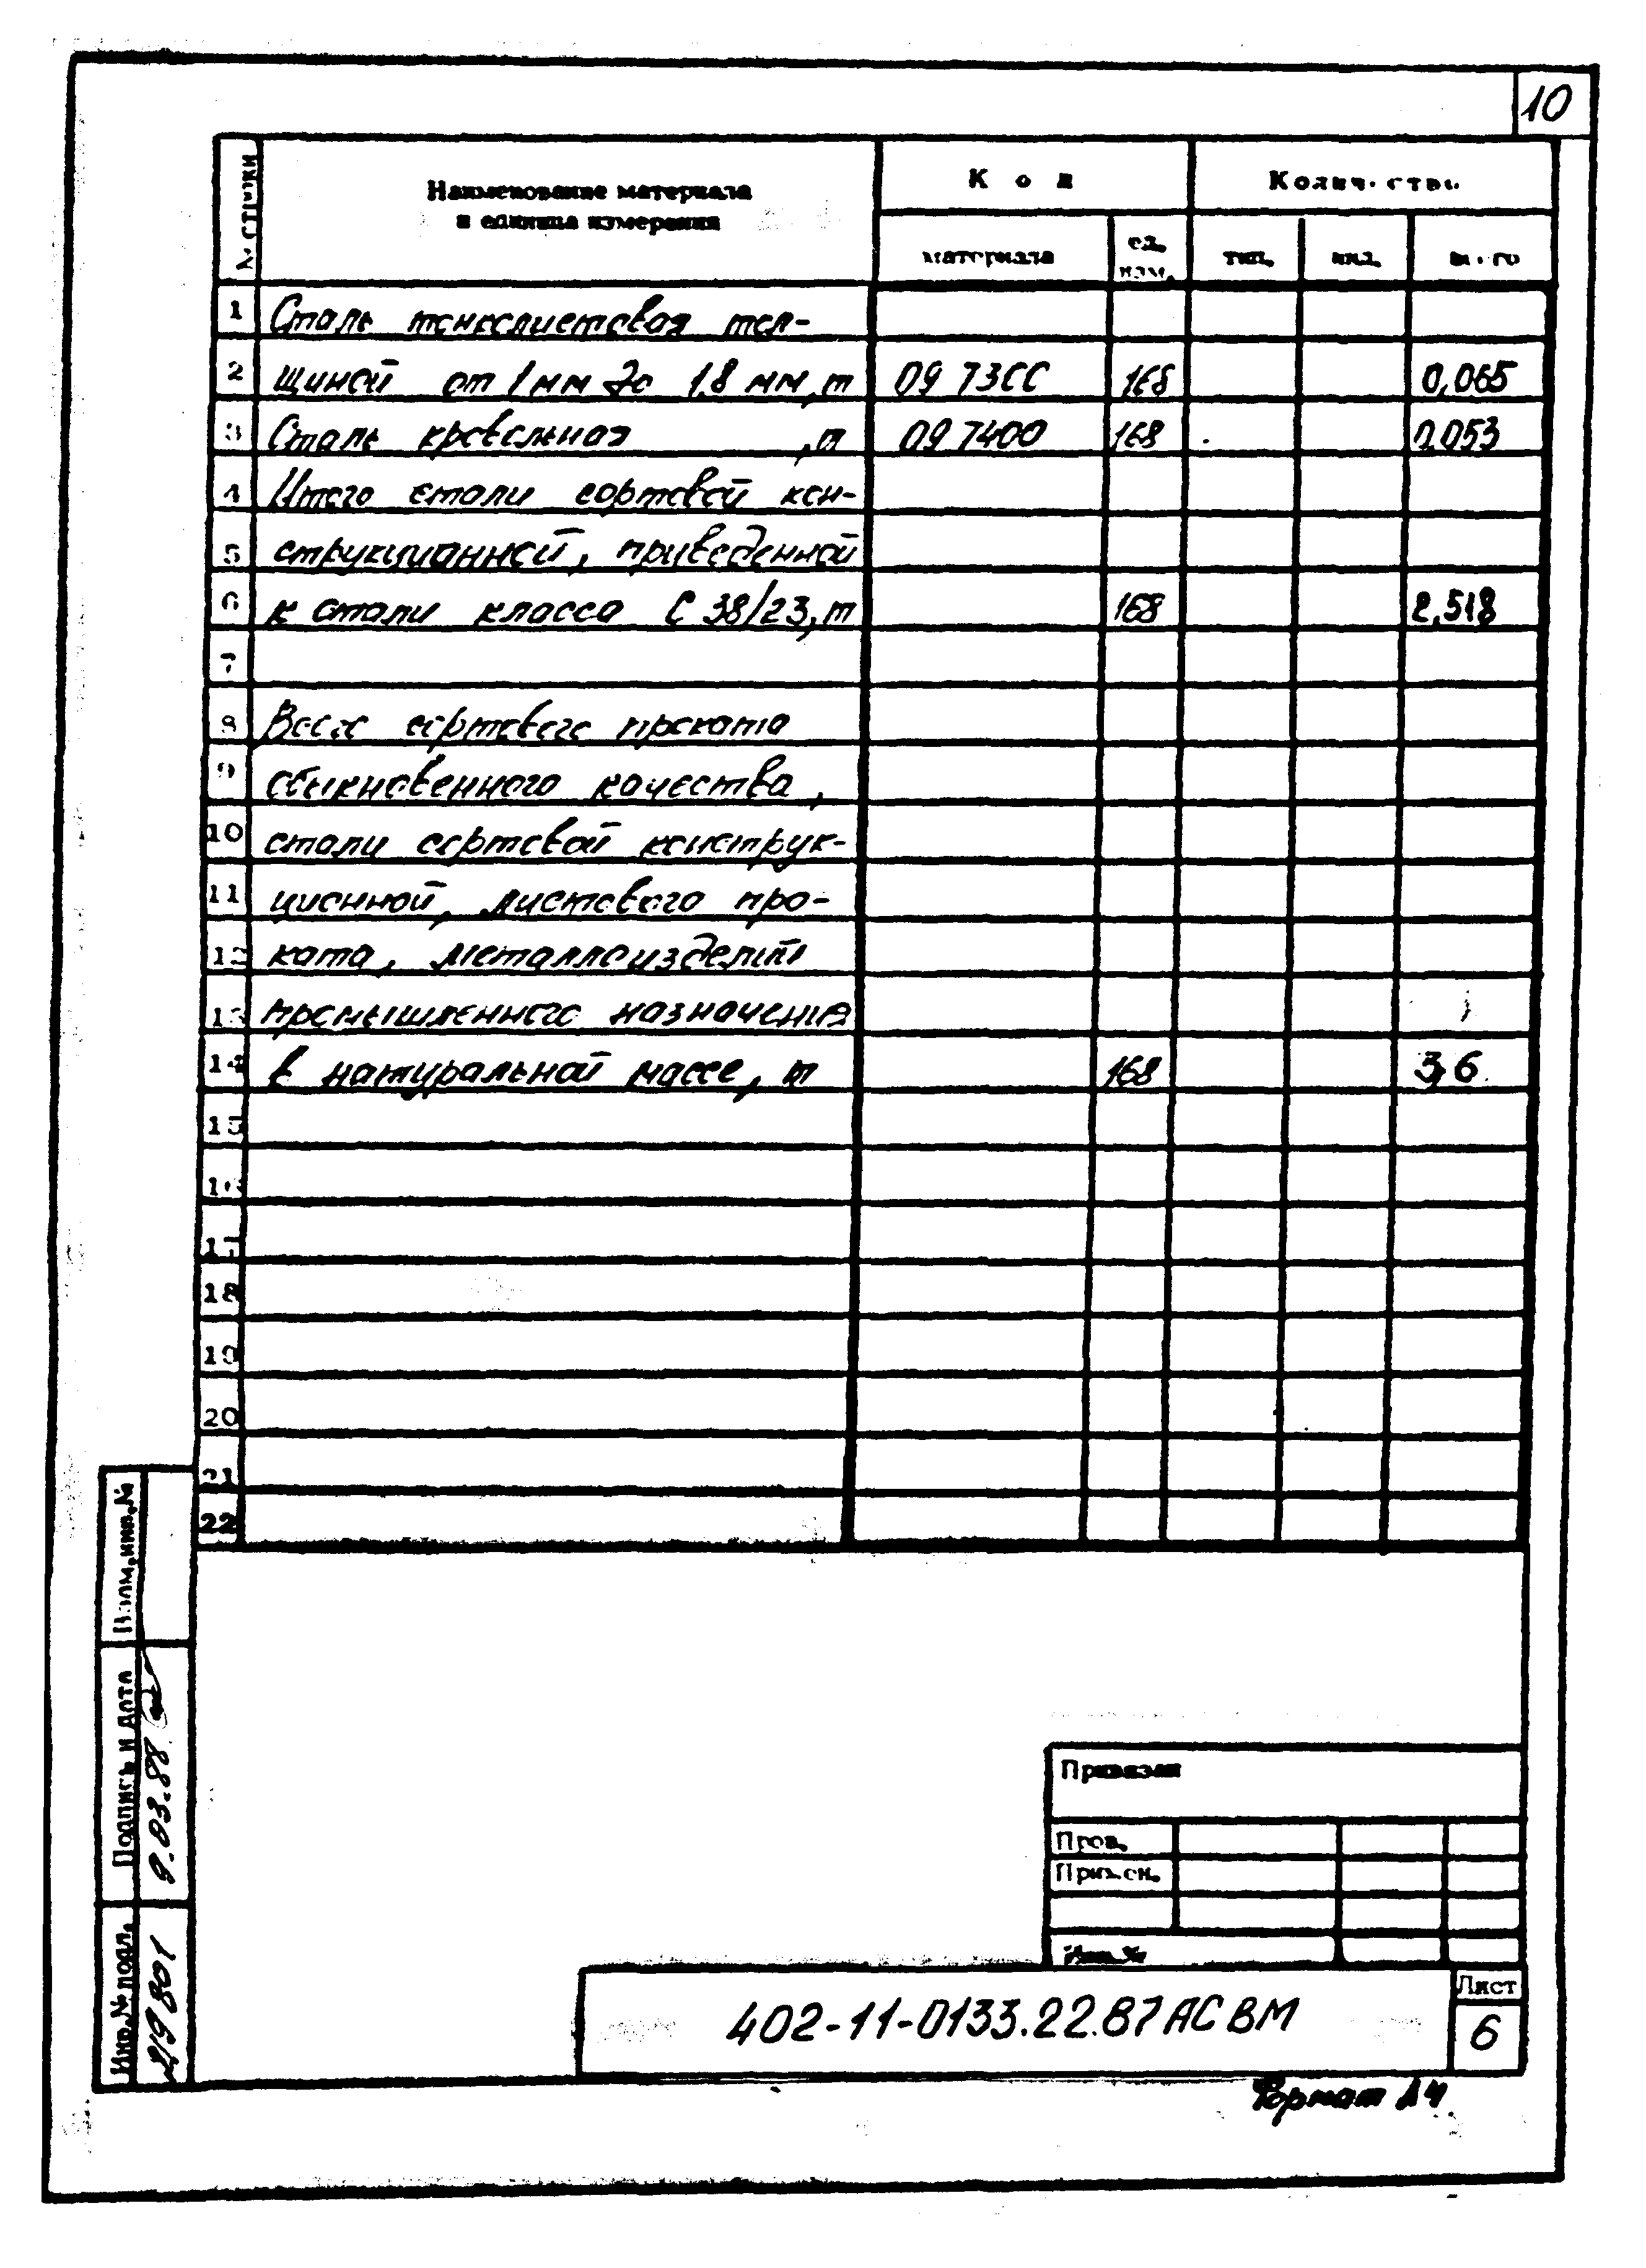 10
№ строки
Наименование материала
и единица измерения
Код
Количество
материала
ед.
изм.
тип.
инд.
всего
1 Сталь тонколистовая тол-
2 щиной от 1 мм до 1,8 мм, т 09 7300 168 0,065
3 Сталь кровельная , т 09 7400 168 0,053
4 Итого стали сортовой кон-
5 струкционной, приведенной
6 к стали класса С 38/23, т 168 2,518
7
8 Всего сортового проката
9 обыкновенного качества,
10 стали сортовой конструк-
11 ционной, листового про-
12 ката, металлоизделий
13 промышленного назначения
14 в натуральной массе, т 168 3,6
15
16
17
18
19
20
21
22
Взам.инв.№
Подпись и дата
9.03.88
Инв.№ подл.
Привязан
Пров.
Примен.
Инв.№
402-11-0133.22.87 АС ВМ
Лист
6
Формат А4